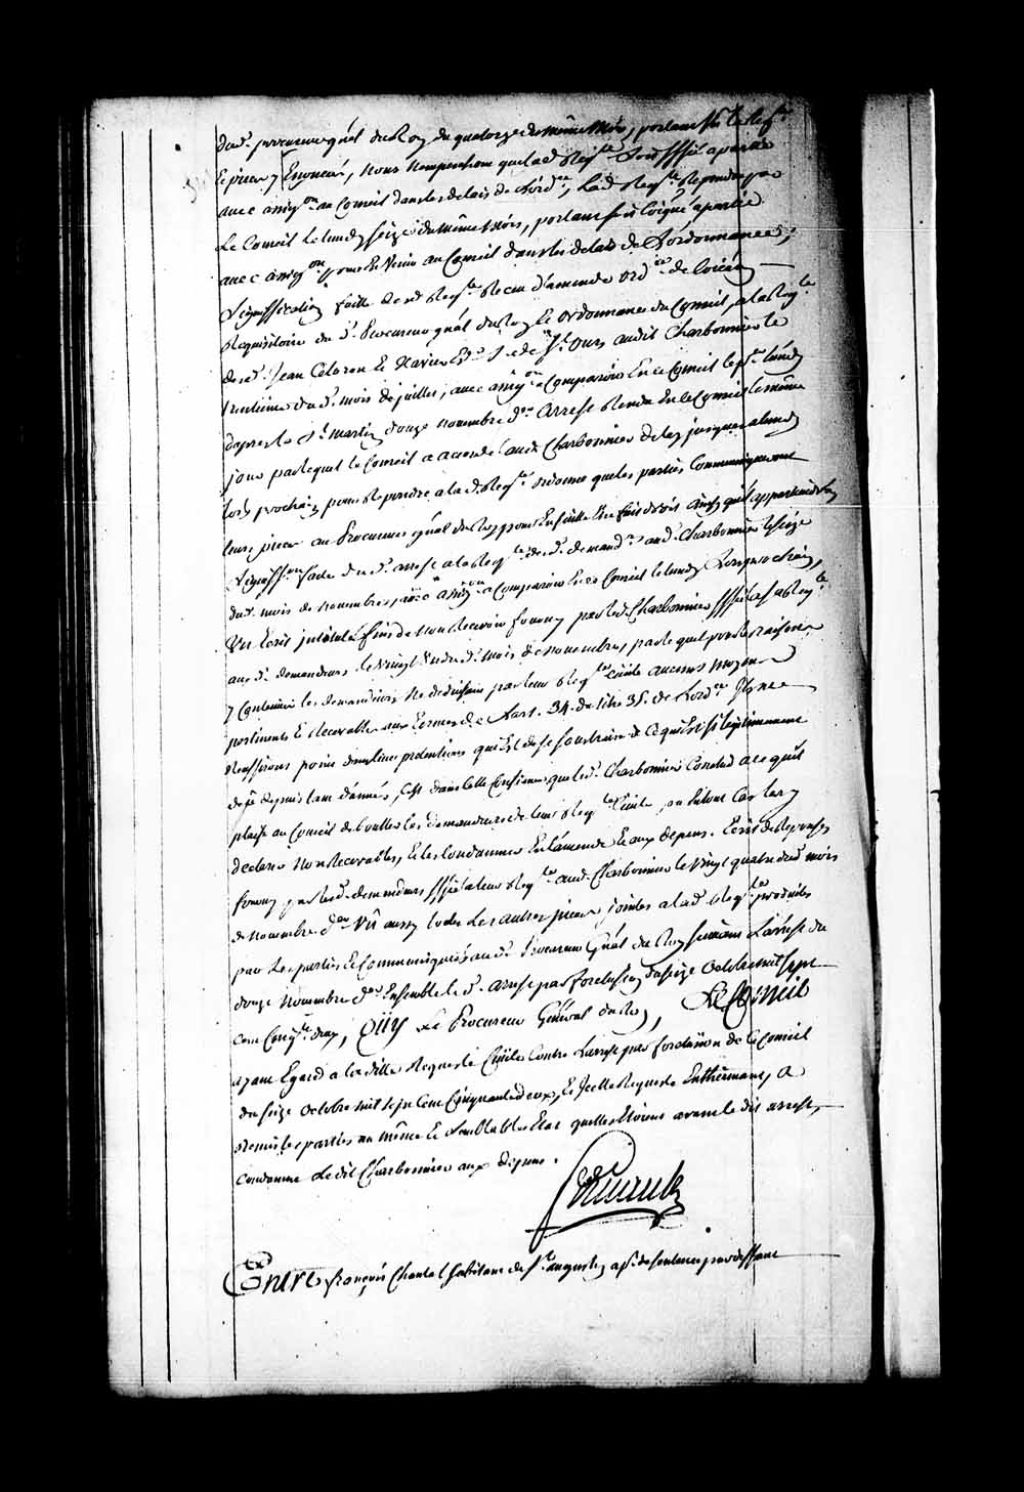 dud. procureur gñal du Roy du quatorze du même mois, portant soit la Reqte
le pieces y Enoncés, nous n'empechons que lad Reqte soit Signiffié a partie
avec assigon. au Conseil dans les delais de l'ordce, lad Reqte Repondue par
Le Conseil Le lundy seize du même mois, portant soit Signé a partie
avec assigon pour En Venir au Conseil dans les delais de L'ordonnance,
Signiffication faitte de Reqte Recu d'amende ordce de Soient
Requisitoire du S. Procureur gñal du Roy Et ordonnance du Conseil, a la Reqte
desd. Jean Celoron Et Xavier de St. Ours audit Charbonnier le
trentieme dud. mois de juillet, avec assigon a Comparoir En ce Conseil le lundy
d'apres la St. martin douze novembre dor Arrest Rendu En le Conseil le même
jour par lequel le Conseil a accordé audt Charbonnier delay jusques a lundy
lors prochain pour Repondre a lad. Reqte ordonne que les parties Communiqueront
leurs pieces au Procureur gñal du Roy pour Ensuitte Etre fait droit ainsy qu'il appartiendra
Signiffon faite dud. arrest a la Reqte desd. demandrs aud. Charbonnier le seize
dud. mois de novembre, avec assigon a Comparoir En ce Conseil le lundy Lors prochain,
Un Ecrit intitulé fins de non Recevoir fourny par led. Charbonnier Signiffié a sa Reqte
auxd. demandeurs le vingt dud. mois de novembre, par lequel pour les raisons
y Contenues les demandeurs ne deduisant par leur Reqte civile aucuns moyens
pertinents Et Recevables aux termes de l'art. 34. du titre 35. de L'ordce Ils ne
Reussiront point dans leurs pretentions qui Est de se soustraire de ce qui Est si legitimement
dejé depuis tant d'années, C'est dans cette Confiance que led. Charbonnier Conclud a ce qu'il
plaise au Conseil debouter les demandeurs de leur Reqte Civile, ou en tout Cas les y
declarer non Recevables, Et les Condamner En l'amende Et aux depens. Ecrit de Reponses
fourny par lesd. demandeurs Signiffié a leur Reqte aud. Charbonnier le vingt quatre dud mois
de novembre dor. Vû aussy toutes Les autres pieces jointes a lad. Reqte produites
par Les parties Et Communiquées aud. Procureur Gñal du Roy suivant L'arrest du
douze novembre dor Ensemble le d. arrest par forclusion du seize Octobre mil sept
cent Cinqte deux, Oüy Le Procureur Général du Roy, Le Conseil
ayant Egard a la ditte Requeste Civile Contre L'arrest par forclusion de ce Conseil
du seize octobre mil sept Cent Cinquante deux, Et Icelle Requeste Entherinant, a
Remis les parties au même Et Semblable Etat quelles Etoient avant le dit arrest,
Condamne Le dit Charbonnier aux depens.
Entre françois Chantal habitant de St. augustin apt. de sentence par deffaut